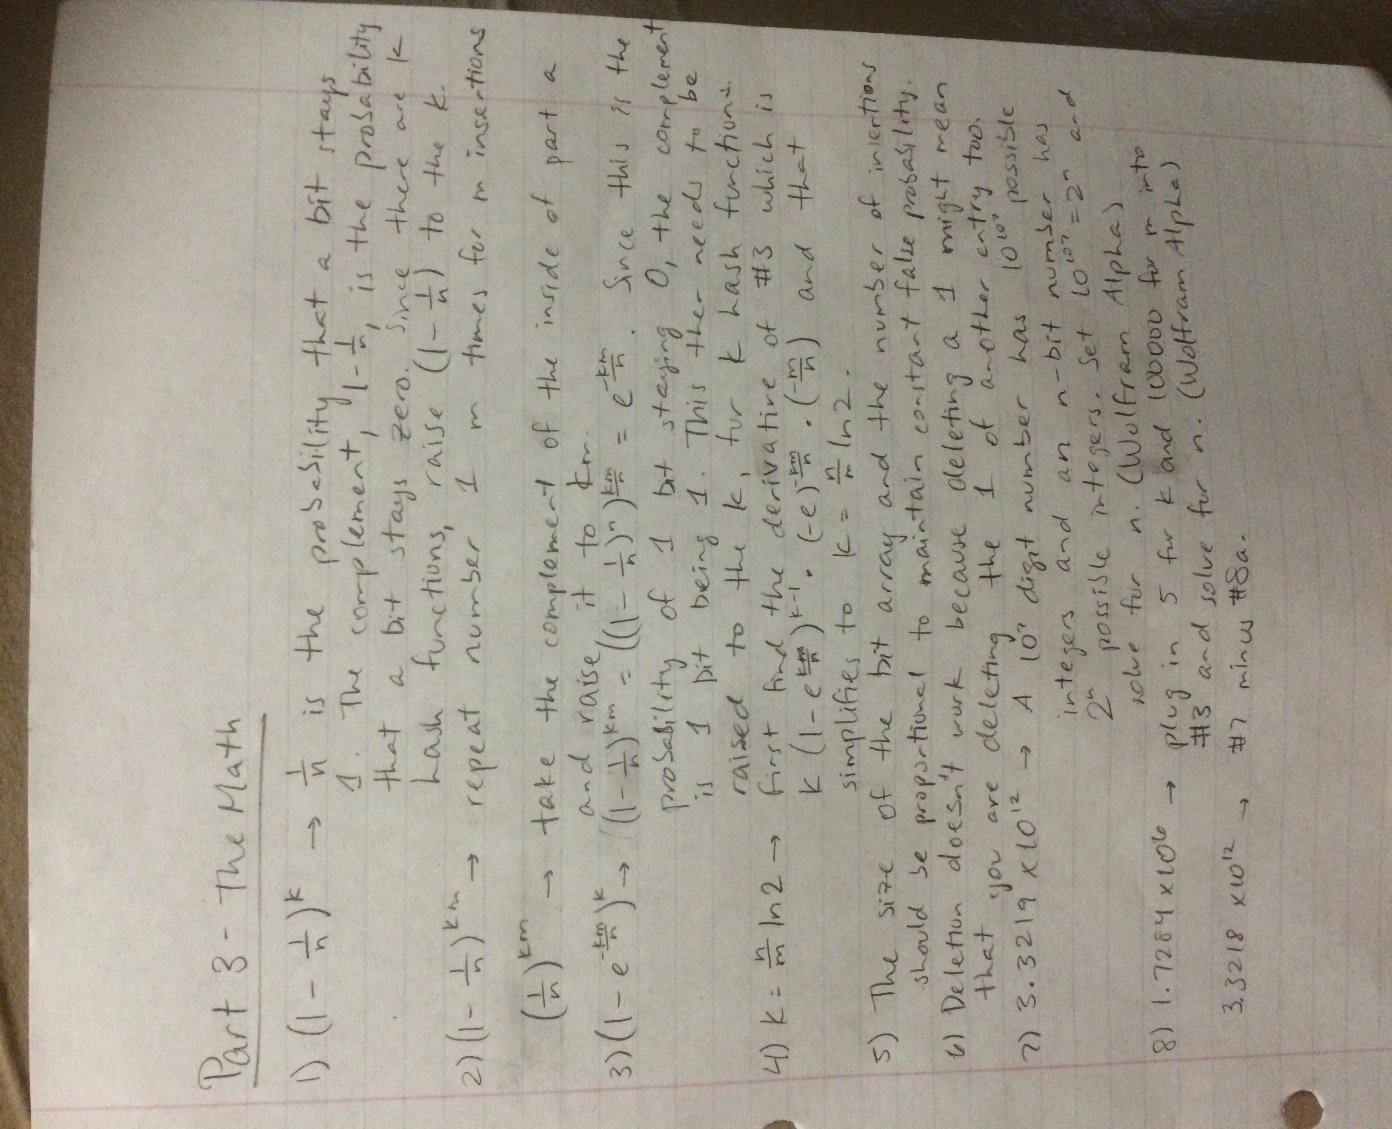 Part 3 - The Math
1) (1 - 1/n)^k → 1/n is the probability that a bit stays
1. The complement, 1 - 1/n, is the probability
that a bit stays zero. Since there are k
hash functions, raise (1 - 1/n) to the k.
2) (1 - 1/n)^km → repeat number 1 m times for m insertions
(1/n)^km → take the complement of the inside of part a
and raise it to km.
3) (1 - e^(-km/n))^k → ((1 - 1/n)^km = ((1 - 1/n)^n)^(km/n) = e^(-km/n). Since this is the
probability of 1 bit staying 0, the complement
is 1 bit being 1. This then needs to be
raised to the k, for k hash functions.
4) k = n/m ln2 → first find the derivative of #3 which is
k (1 - e^(km/n))^(k-1) · (-e)^(-km/n) · (-m/n) and that
simplifies to k = n/m ln2.
5) The size of the bit array and the number of insertions
should be proportional to maintain constant false probability.
6) Deletion doesn't work because deleting a 1 might mean
that you are deleting the 1 of another entry too.
7) 3.3219 x 10^12 → A 10^? digit number has 10^10^? possible
integers and an n-bit number has
2^n possible integers. Set 10^10^? = 2^n and
solve for n. (Wolfram Alpha)
8) 1.7284 x 10^6 → plug in 5 for k and 100000 for m into
#3 and solve for n. (Wolfram Alpha)
3.3218 x 10^12 → #7 minus #8a.